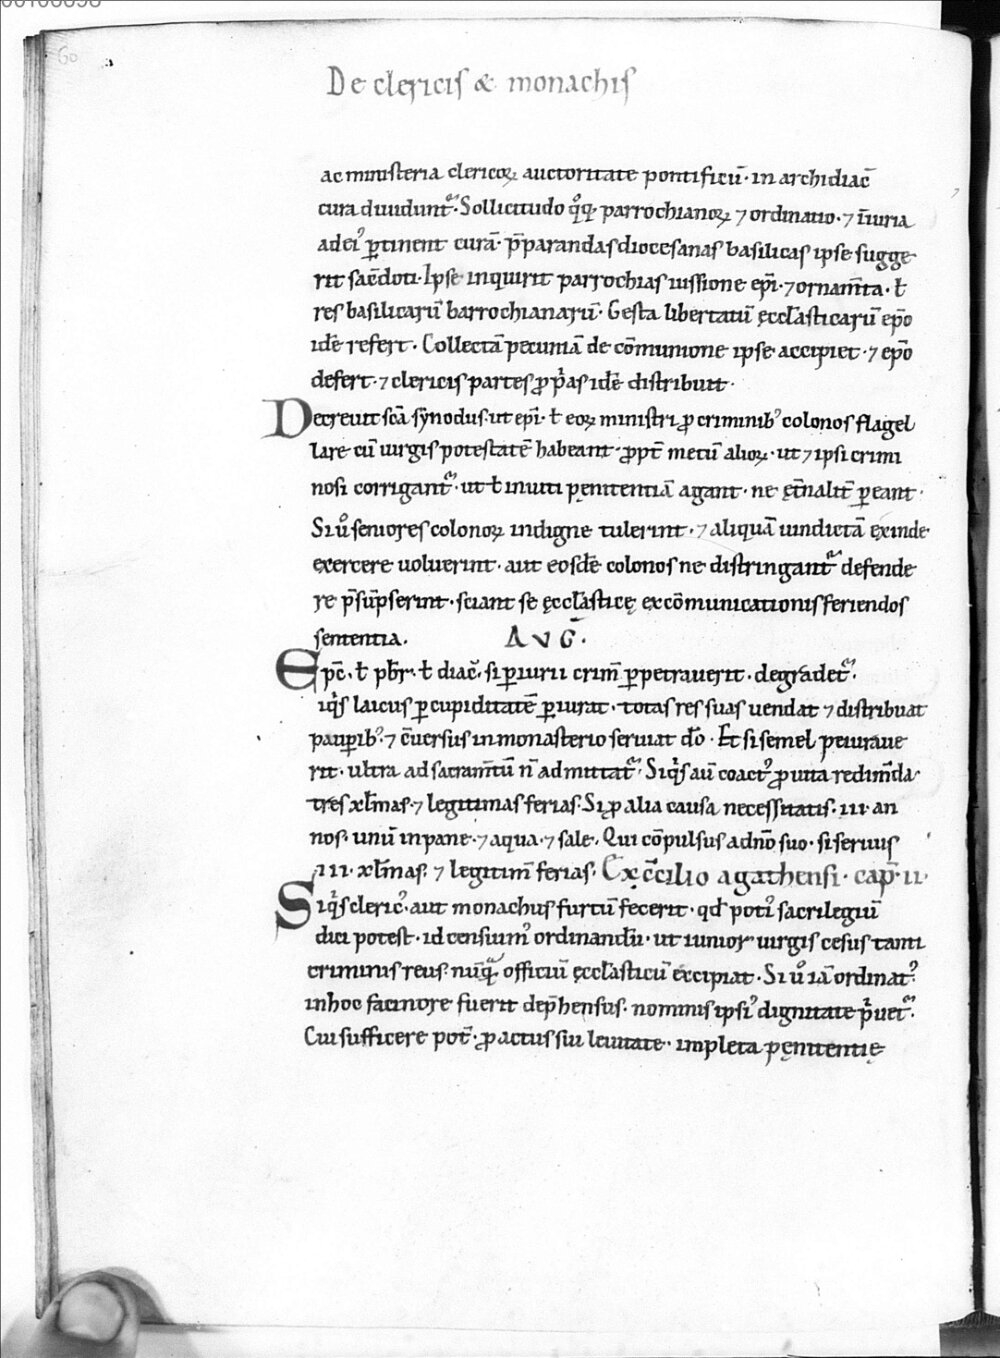 60
De clericis & monachis
ac ministeria clericoꝝ auctoritate pontificū· in archidiac̄
cura diuidunt᷑· Sollicitudo q̊q; parrochianoꝝ ⁊ ordinatio· ⁊ iīuria
ad ei᾽ ꝑtinent curā· p̄parandas diocesanas basilicas ipse sugge
rit sac̄doti· Ipse inquirit parrochias iussione ep̄i· ⁊ ornam̄ta· ł
res basilicarū barrochianarū· Gesta libertatū ęccl̄asticarū ep̄o
idē refert· Collectā pecuniā de cōmunione ipse accipiet· ⁊ ep̄o
defert· ⁊ clericis partes ꝓp̍as idē distribuit·
Decreuit sc̄a synodus· ut ep̄i· ł eoꝝ ministri ꝓ criminib᾽ colonos flagel
lare cū uirgis potestatē habeant· ꝓpt̄ metū alioꝝ· ut ⁊ ipsi crimi
nosi corrigant᷑· ut ł inuiti penitentiā agant· ne ęt̄nalit̄ ꝑeant·
Si ů seniores colonoꝝ indigne tulerint· ⁊ aliquā uindictā exinde
exercere uoluerint· aut eosdē colonos ne distringant᷑ defende
re p̄sūpserint· sciant se ęccl̄asticę excōmunicationis feriendos
sententia. AVḠ.
Epc̄· ł pb̄r· ł diac̄· si ꝑiurii crim̄ ꝑpetrauerit· degradet᷑·
iq̍s laicus ꝑ cupiditatē ꝑiurat· totas res suas uendat ⁊ distribuat
pauꝑib᾽· ⁊ c̄uersus in monasterio seruiat dō· Et si semel peiuraue
rit· ultra ad sacram̄tū n̄ admittat᷑· Siq̍s aū coact᾽ ꝓ uita redim̄da·
tres xl̄mas· ⁊ legitimas ferias· Si ꝓ alia causa necessitatis· iii· an
nos· unū in pane· ⁊ aqua· ⁊ sale· Qui cōpulsus a dn̄o suo· si seruus
iii· xl̄mas· ⁊ legitim̄ ferias· Ex c̄cilio agathensi· cap̄· ii·
Siq̍s cleric᾽· aut monachus furtū fecerit· qd̄ poti᾽ sacrilegiū
dici potest· id censuim᾽ ordinandū· ut iunior uirgis cesus tanti
criminis reus· nūq̄ officiū ęccl̄asticū excipiat· Si ů iā ordinat᾽
in hoc facinore fuerit dep̄hensus· nominis ipsi᾽ dignitate p̍uet᷑·
Cui sufficere pot̄· ꝓ actus sui leuitate· impleta pęnitentię